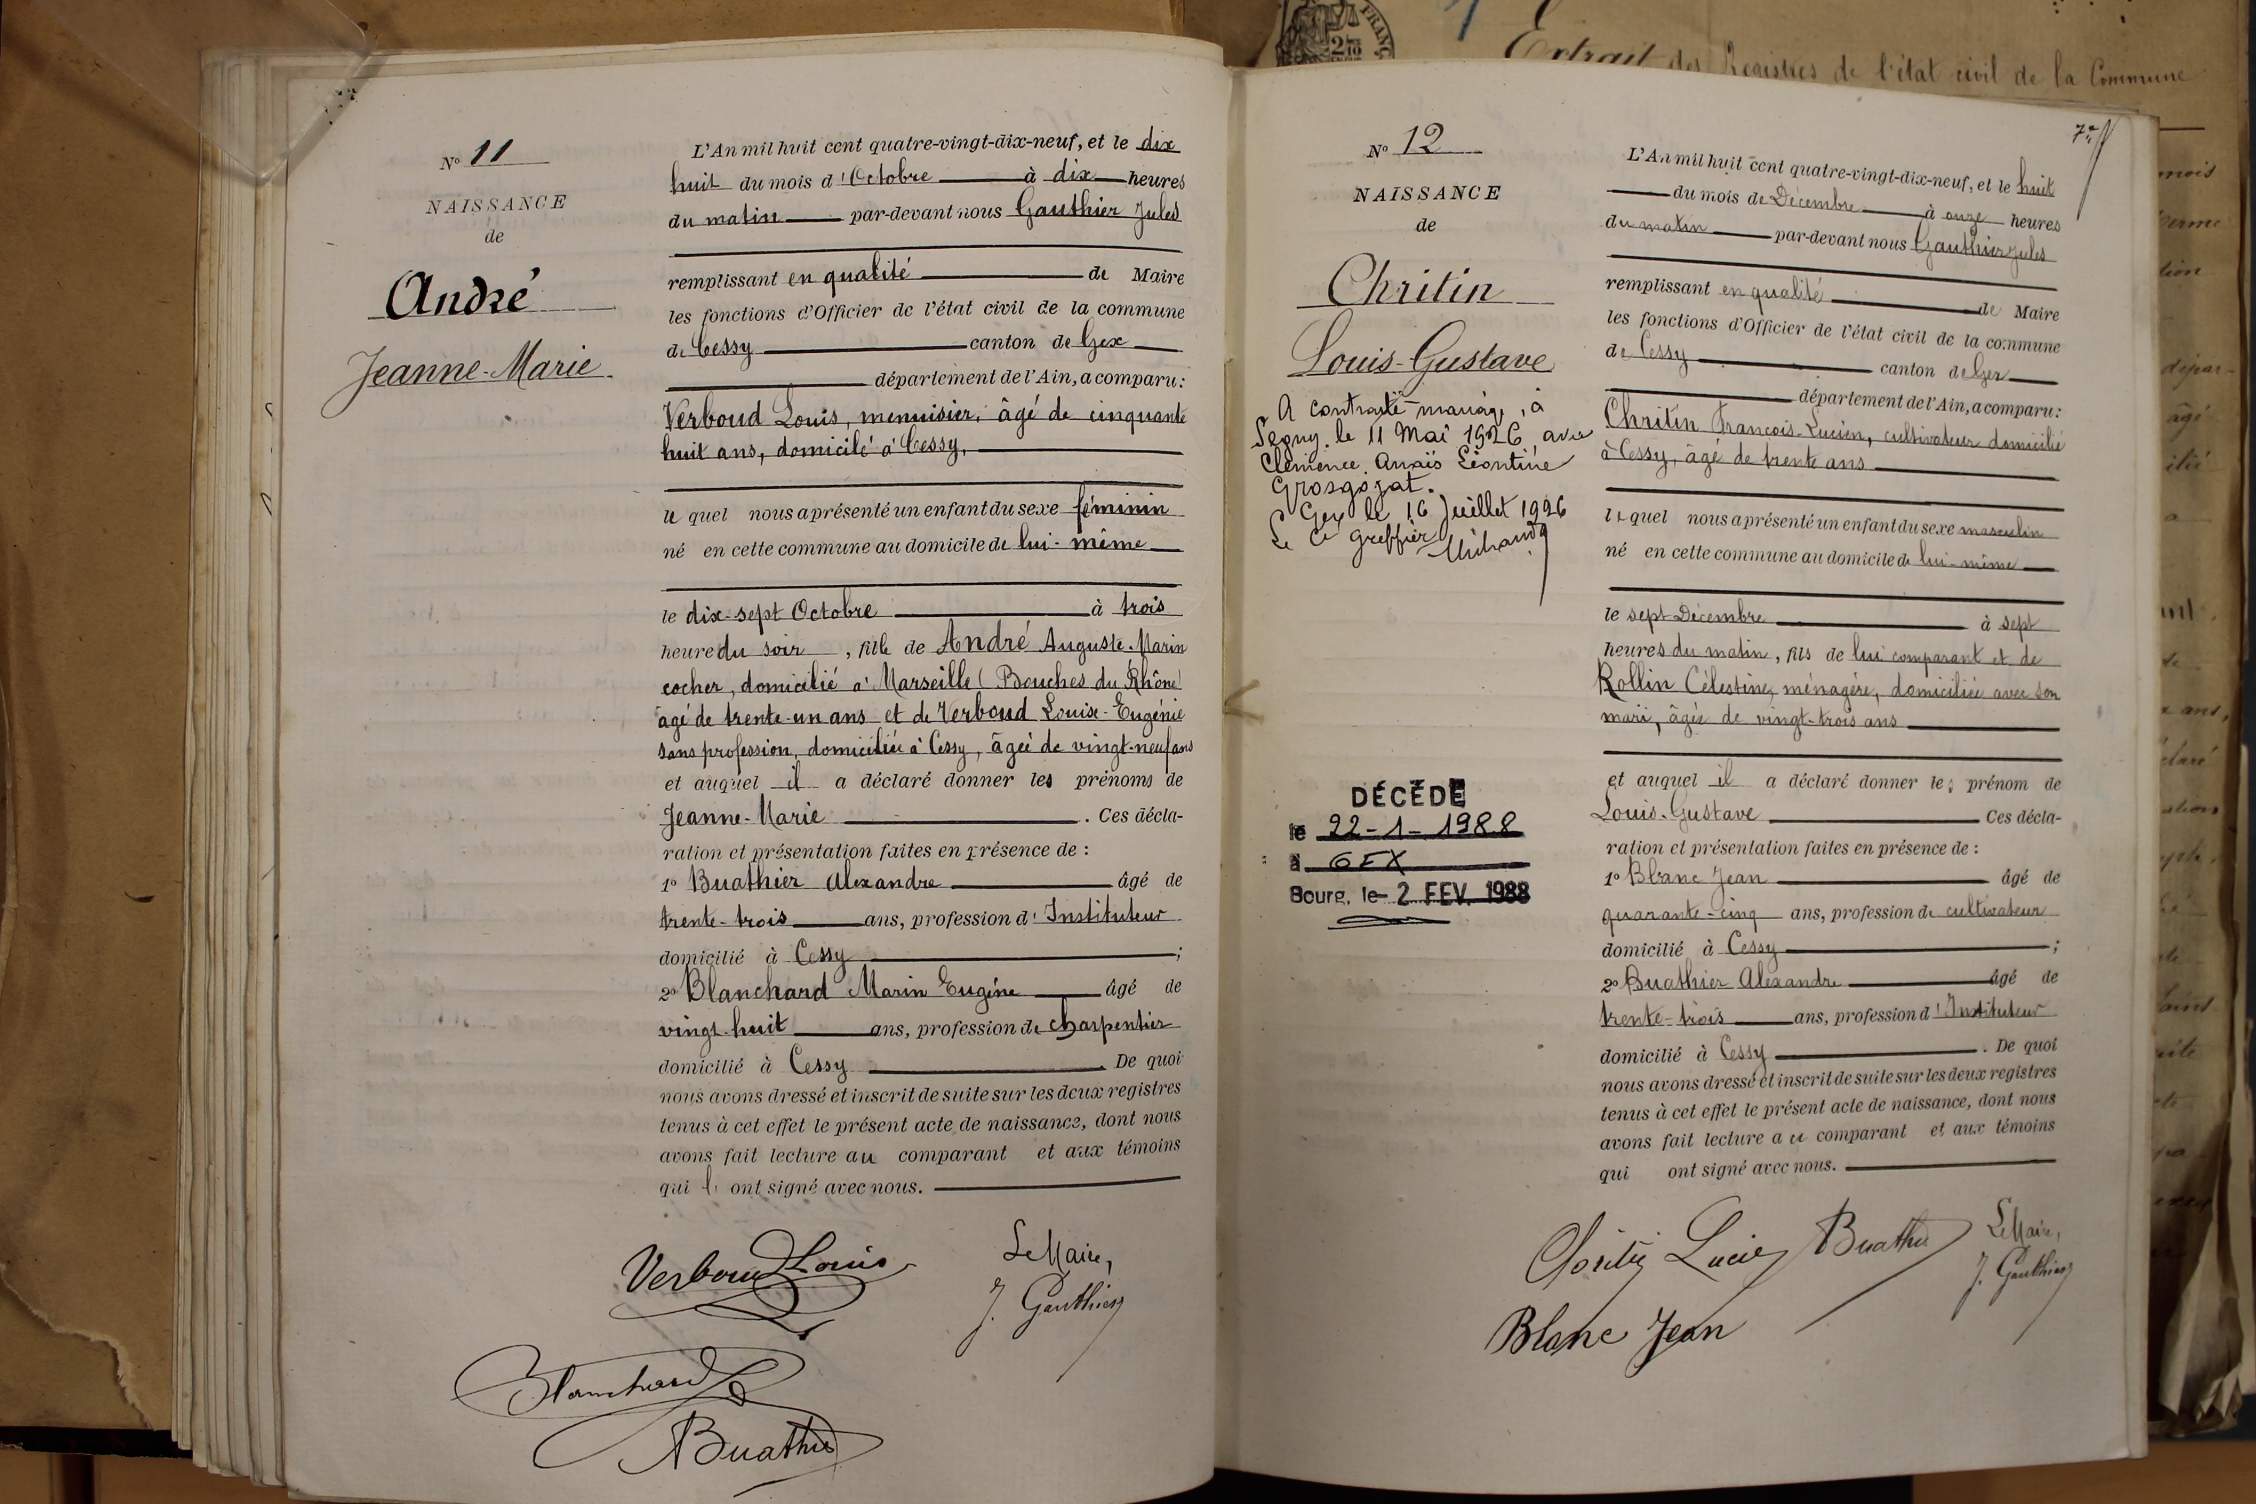 Nº 11
NAISSANCE
de
André
Jeanne-Marie
L'An mil huit cent quatre-vingt-dix-neuf, et le dix
huit du mois d'Octobre à dix heures
du matin par-devant nous Gauthier Jules
remplissant en qualité de Maire
les fonctions d'Officier de l'état civil de la commune
de Cessy canton de Gex
département de l'Ain, a comparu:
Verboud Louis, menuisier, âgé de cinquante
huit ans, domicilé à Cessy,
le quel nous a présenté un enfant du sexe féminin
né en cette commune au domicile de lui-même
le dix-sept Octobre à trois
heure du soir, fille de André Auguste-Marin
cocher, domicilié à Marseille (Bouches du Rhône)
âgé de trente-un ans et de Verboud Louise-Eugénie
sans profession, domiciliée à Cessy, âgée de vingt-neuf ans
et auquel il a déclaré donner les prénoms de
Jeanne-Marie. Ces décla-
ration et présentation faites en présence de :
1º Buathier Alexandre âgé de
trente-trois ans, profession d'Instituteur
domicilié à Cessy ;
2º Blanchard Marin Eugéne âgé de
vingt-huit ans, profession de charpentier
domicilié à Cessy. De quoi
nous avons dressé et inscrit de suite sur les deux registres
tenus à cet effet le présent acte de naissance, dont nous
avons fait lecture au comparant et aux témoins
qui ont signé avec nous.
Verboud Louis
Le Maire,
J. Gauthier
Blanchard
Buathier
Extrait des Registres de l'état civil de la Commune
7e
Nº 12
NAISSANCE
de
Chritin
Louis-Gustave
A contracté mariage, à
Segny, le 11 Mai 1926, avec
Clémence Anaïs Léontine
Grosgojat.
Gex le 16 Juillet 1926
Le Greffier
DÉCÉDÉ
le 22-1-1988
à GEX
Bourg, le 2 FEV. 1988
L'An mil huit cent quatre-vingt-dix-neuf, et le huit
du mois de Décembre à onze heures
du matin par-devant nous Gauthier Jules
remplissant en qualité de Maire
les fonctions d'Officier de l'état civil de la commune
de Cessy canton de Gex
département de l'Ain, a comparu:
Chritin François-Lucien, cultivateur domicilié
à Cessy, âgé de trente ans
lequel nous a présenté un enfant du sexe masculin
né en cette commune au domicile de lui-même
le sept Décembre à sept
heures du matin, fils de lui comparant et de
Rollin Célestine, ménagère, domiciliée avec son
mari, âgée de vingt-trois ans
et auquel il a déclaré donner les prénom de
Louis-Gustave Ces décla-
ration et présentation faites en présence de :
1º Blanc Jean âgé de
quarante-cinq ans, profession de cultivateur
domicilié à Cessy ;
2º Buathier Alexandre âgé de
trente-trois ans, profession d'Instituteur
domicilié à Cessy. De quoi
nous avons dressé et inscrit de suite sur les deux registres
tenus à cet effet le présent acte de naissance, dont nous
avons fait lecture au comparant et aux témoins
qui ont signé avec nous.
Chritin Lucien Buathier
Le Maire,
J. Gauthier
Blanc Jean